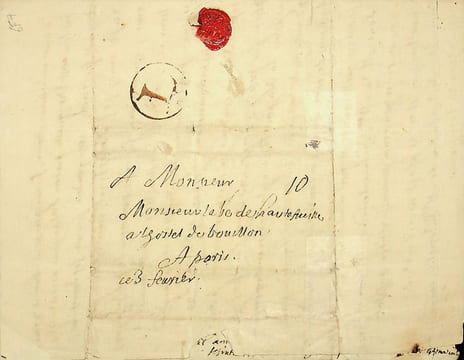 A Monsieur 10
Monsieur labe de hautefeuille
a lhostel de bouillon
A paris.
ce 3 feurier.